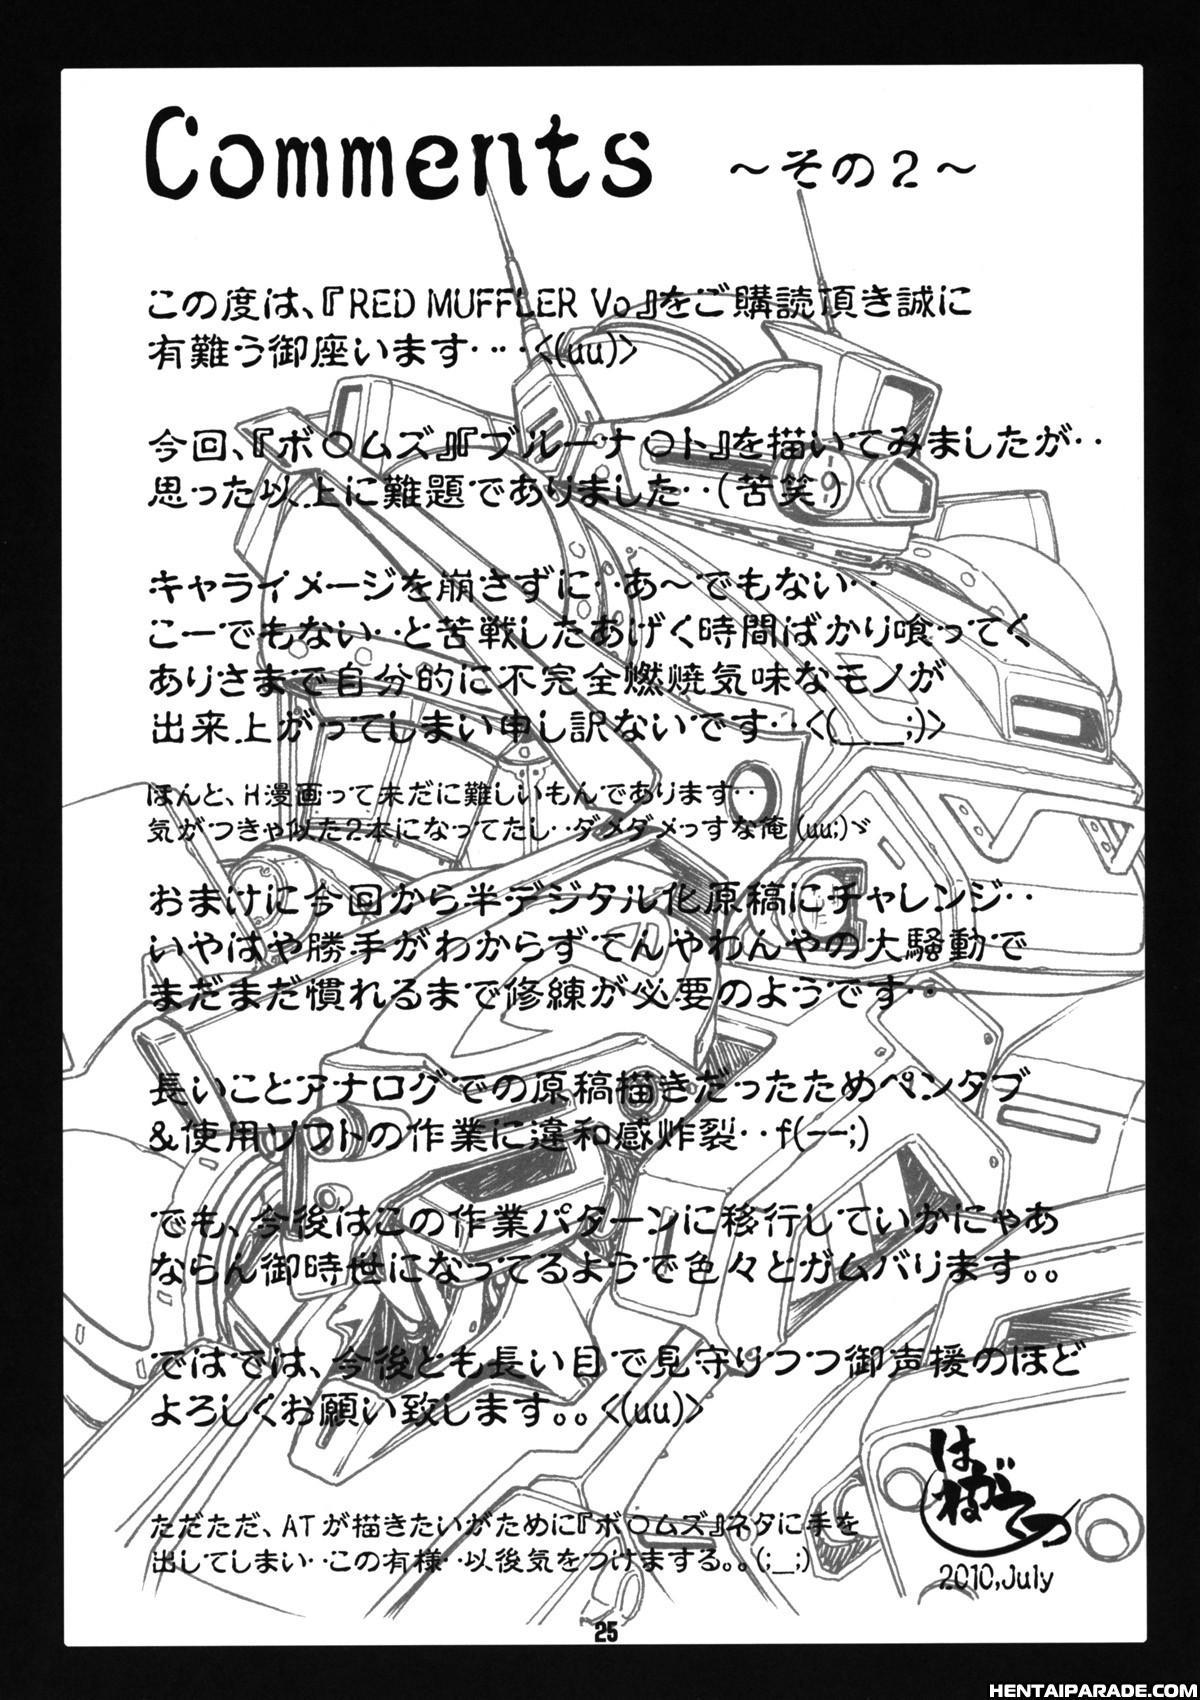 Comments ～その２～
この度は、『RED MUFFLER Vo』をご購読頂き誠に
有難う御座います‥‥<(uu)>
今回、『ボ〇ムズ』『ブルーナ〇ト』を描いてみましたが‥
思った以上に難題でありました‥(苦笑)
キャライメージを崩さずに‥あ～でもない‥
こーでもない‥と苦戦したあげく時間ばかり喰ってく
ありさまで自分的に不完全燃焼気味なモノが
出来上がってしまい申し訳ないです‥<(__;)>
ほんと、H漫画って未だに難しいもんであります‥
気がつきゃ似た2本になってたし‥ダメダメっすな俺(uu;)ゞ
おまけに今回から半デジタル化原稿にチャレンジ‥
いやはや勝手がわからずてんやわんやの大騒動で
まだまだ慣れるまで修練が必要のようです‥
長いことアナログでの原稿描きだったためペンタブ
&使用ソフトの作業に違和感炸裂‥f(--;)
でも、今後はこの作業パターンに移行していかにゃあ
ならん御時世になってるようで色々とガムバリます。。
ではでは、今後とも長い目で見守りつつ御声援のほど
よろしくお願い致します。。<(uu)>
はねがつ
ただただ、ATが描きたいがために『ボ〇ムズ』ネタに手を
出してしまい‥この有様‥以後気をつけまする。。(;_;)
2010,July
25
HENTAIPARADE.COM